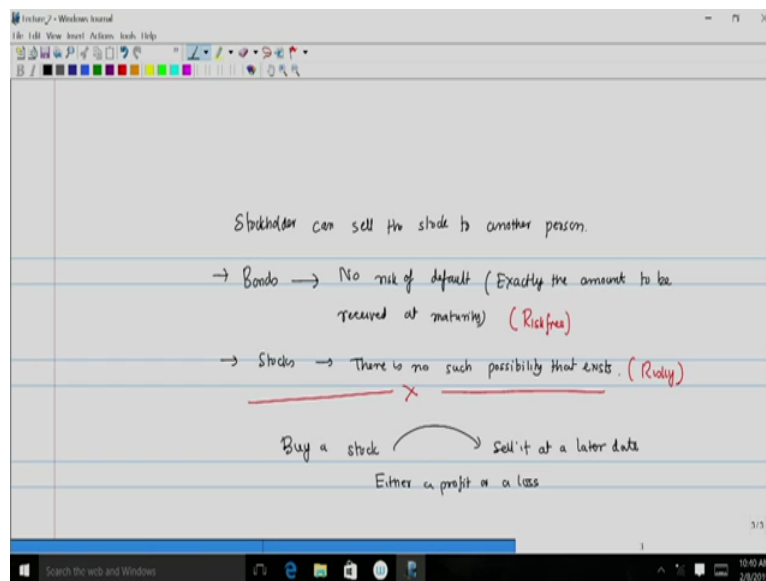 Lecture_7 - Windows Journal
File Edit View Insert Actions Tools Help
B I
Stockholder can sell the stock to another person.
→ Bonds → No risk of default (Exactly the amount to be
received at maturity) (Risk free)
→ Stocks → There is no such possibility that exists. (Risky)
×
Buy a stock Sell it at a later date
Either a profit or a loss
3/3
1
Search the web and Windows
10:40 AM